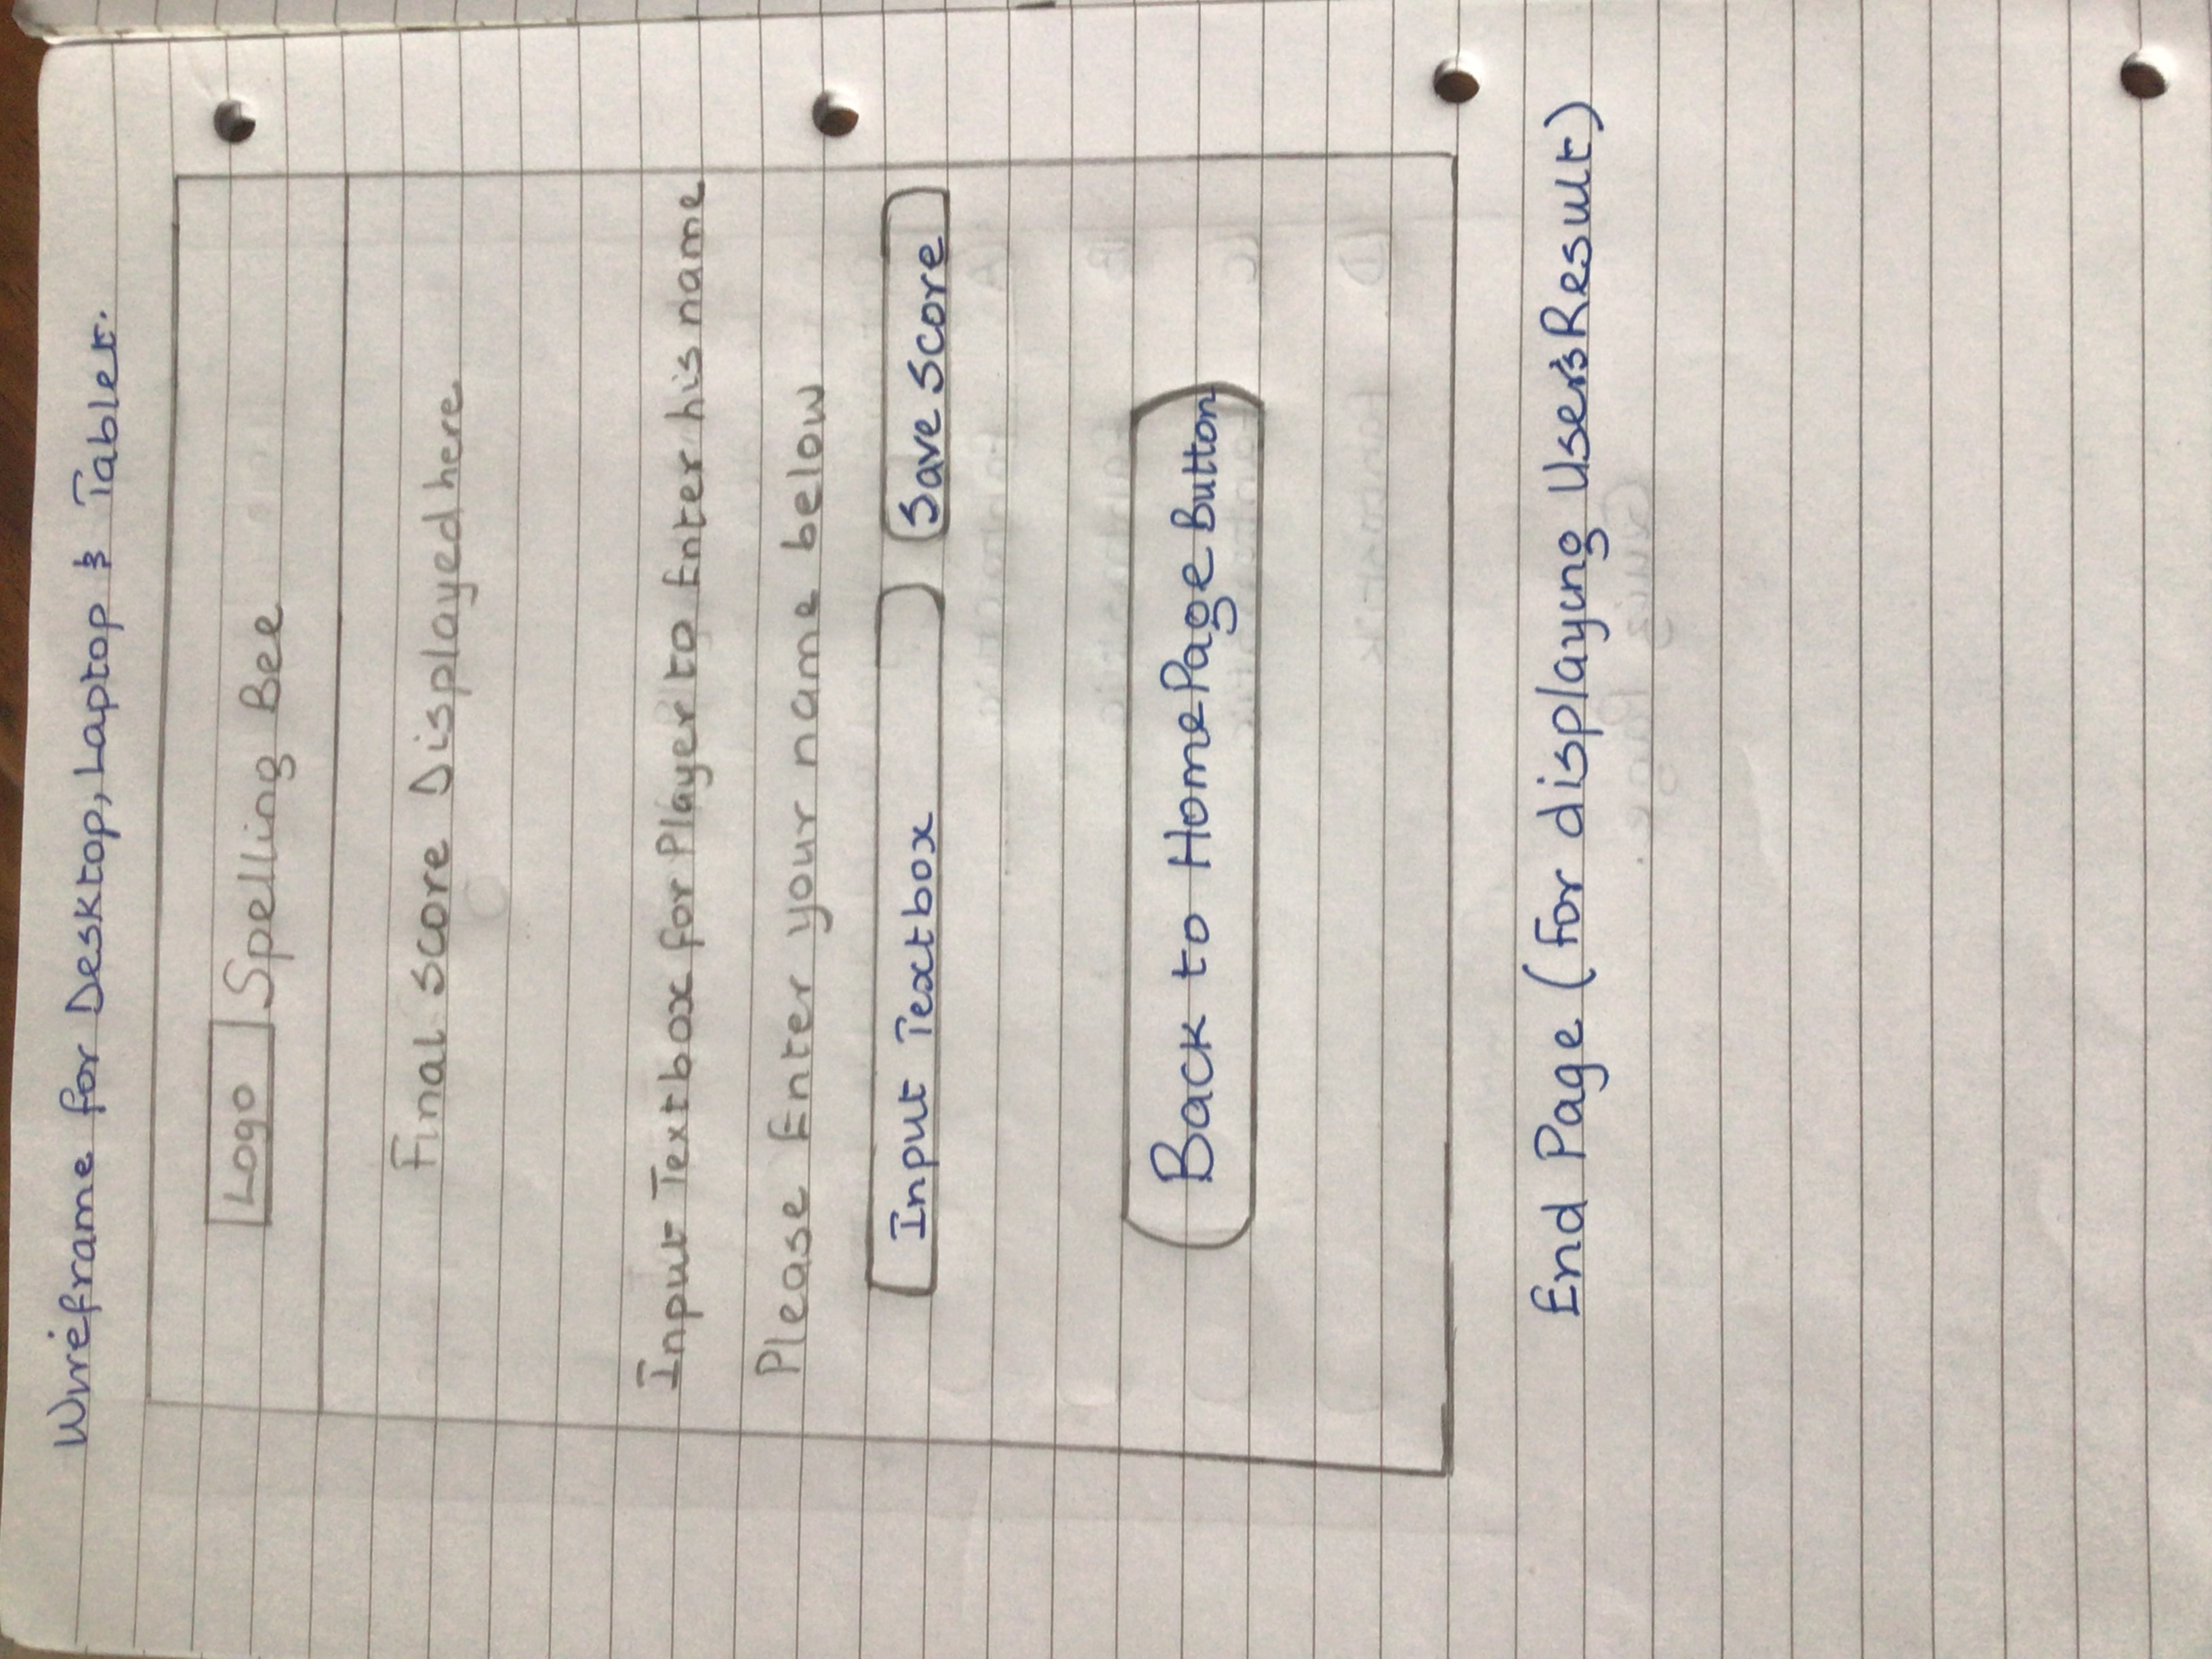 Wireframe for Desktop, Laptop & Tablet.
Logo Spelling Bee
Final score Displayed here
Input Textbox for Player to Enter his name
Please Enter your name below
Input Textbox Save score
Back to HomePage Button
End Page (For displaying User's Result)
A. 
B. Fantastic
C. 
D. Fantastik
Quiz Page.